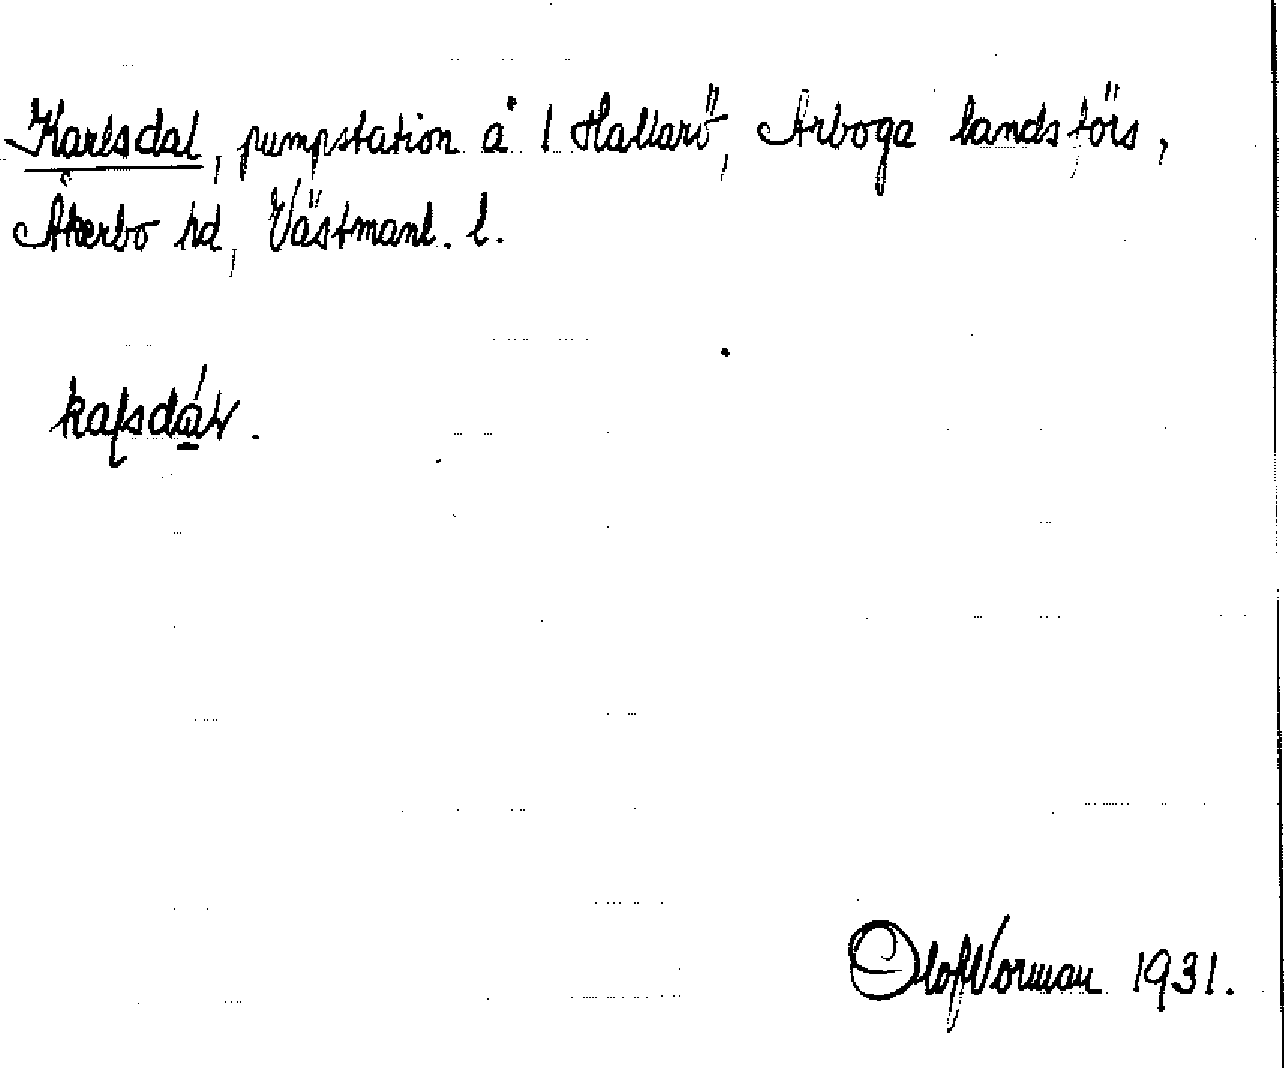 Karlsdal, pumpstation å 1 Hallarö, Arboga landsförs,
Åkerbo hd, Västmanl. l.
Olof Norman 1931.